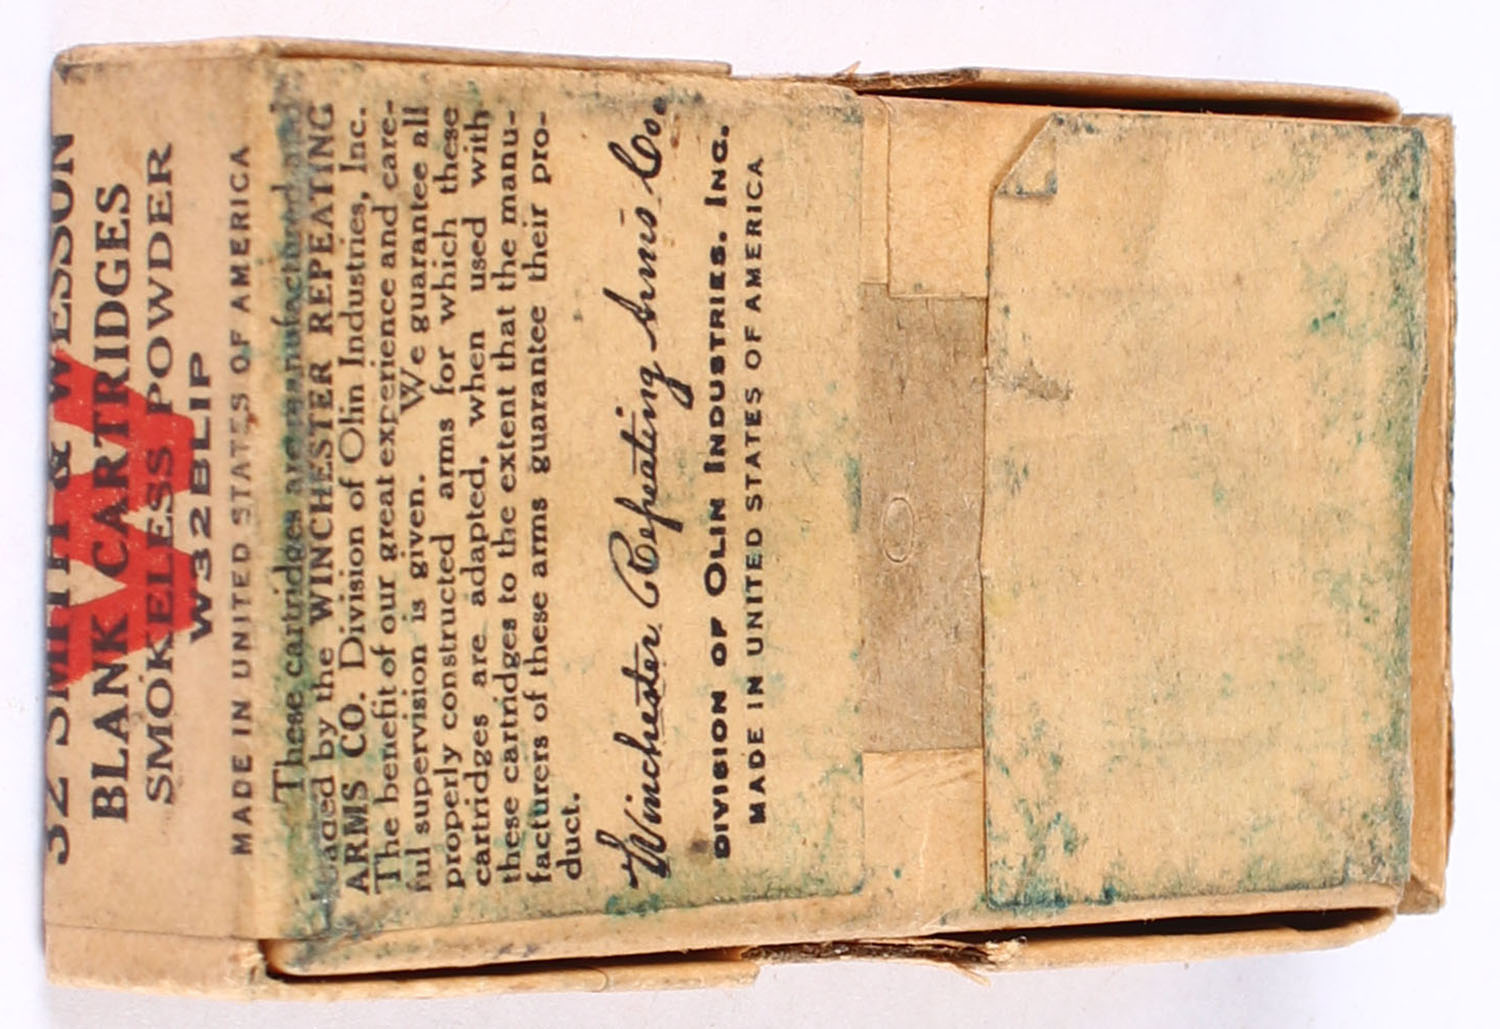 32 SMITH & WESSON
BLANK CARTRIDGES
SMOKELESS POWDER
W32BLIP
MADE IN UNITED STATES OF AMERICA
These cartridges are manufactured and
loaded by the WINCHESTER REPEATING
ARMS CO. Division of Olin Industries, Inc.
The benefit of our great experience and care-
ful supervision is given. We guarantee all
properly constructed arms for which these
cartridges are adapted, when used with
these cartridges to the extent that the manu-
facturers of these arms guarantee their pro-
duct.
Winchester Repeating Arms Co.
DIVISION OF OLIN INDUSTRIES, INC.
MADE IN UNITED STATES OF AMERICA